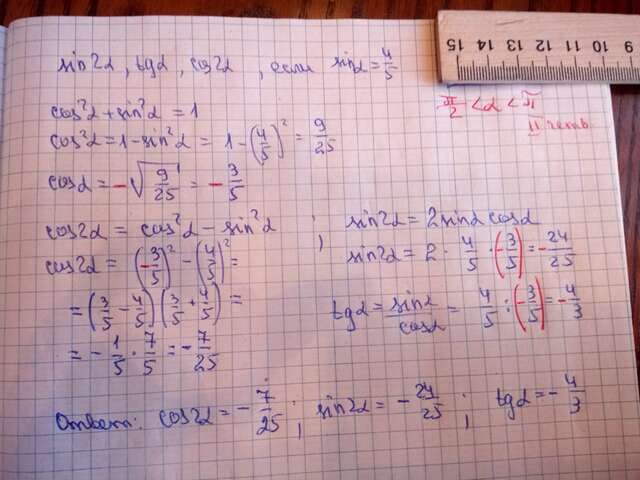 sin2α, tgα, cos2α, если sinα = 4/5
π/2 < α < π
II четв
cos²α + sin²α = 1
cos²α = 1 - sin²α = 1 - (4/5)² = 9/25
cosα = -√(9/25) = -3/5
cos2α = cos²α - sin²α ;
cos2α = (-3/5)² - (4/5)² =
= (3/5 - 4/5)(3/5 + 4/5) =
= -1/5 · 7/5 = -7/25
sin2α = 2sinα cosα
sin2α = 2 · 4/5 · (-3/5) = -24/25
tgα = sinα/cosα = 4/5 : (-3/5) = -4/3
Ответ: cos2α = -7/25 ; sin2α = -24/25 ; tgα = -4/3
15
14
13
12
11
10
9